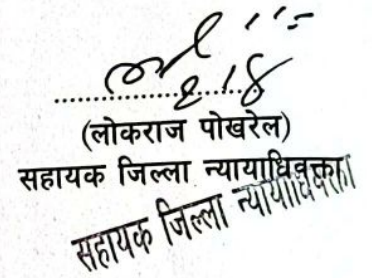 (लोकराज पोखरेल)
सहायक जिल्ला न्यायाधिवक्ता
सहायक जिल्ला न्यायाधिवक्ता